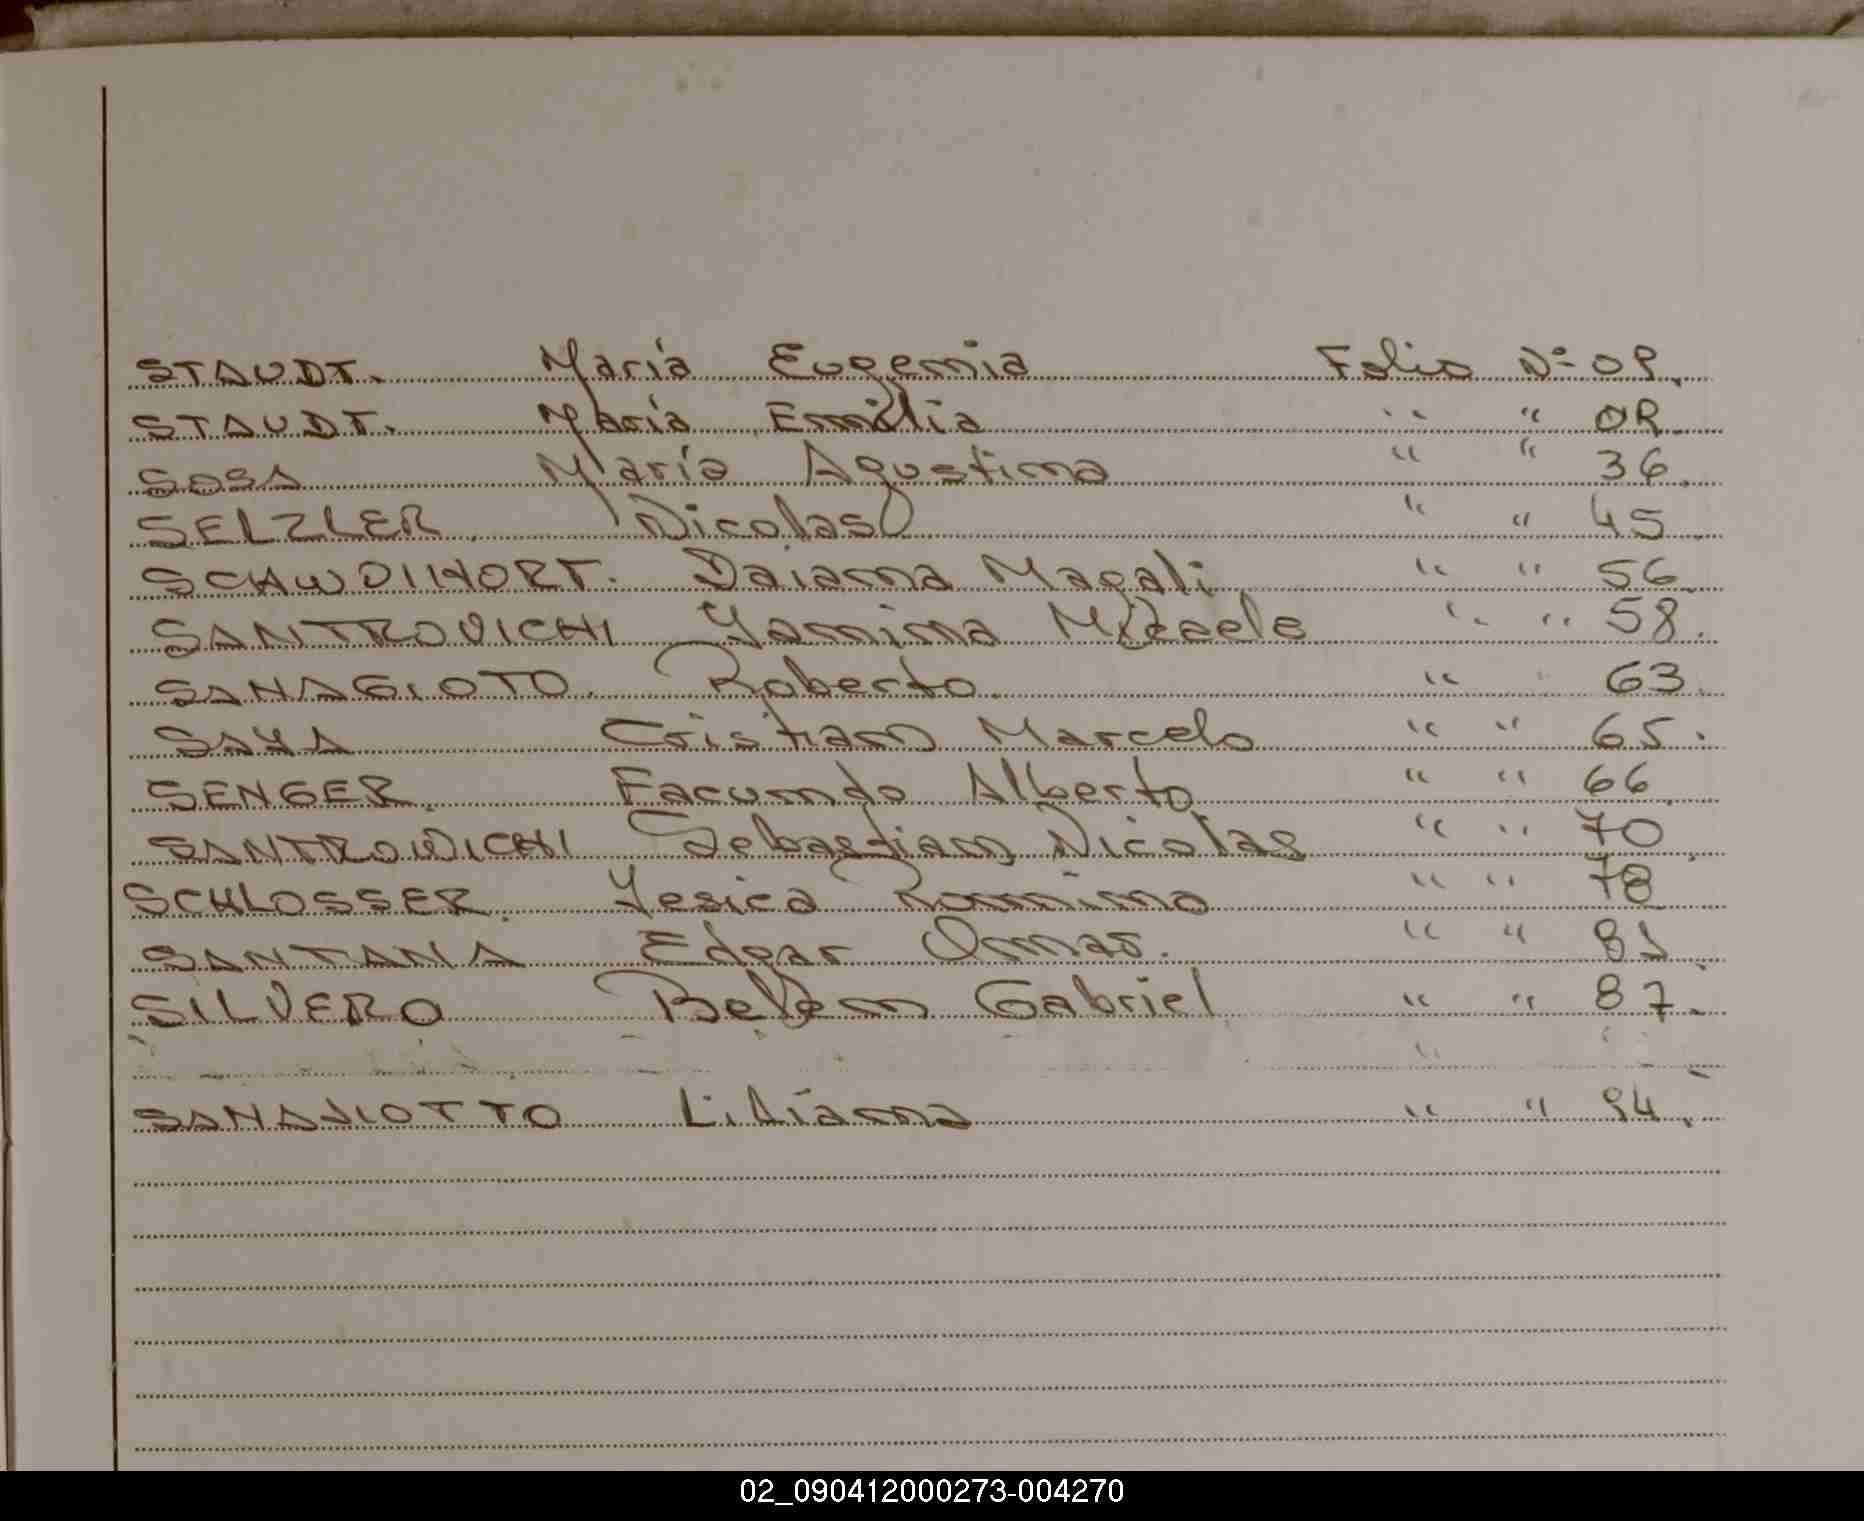 STAUDT. María Eugenia Folio Nº 09.
STAUDT. María Emilia " " 09.
SOSA María Agustina " " 36.
SELZLER. Nicolas " " 45
SCHWDIIHORT. Daiana Magali " " 56
SANTROVICHI Yamina Micaela " " 58.
SANAGIOTO. Roberto. " " 63.
SAYA Cristian Marcelo " " 65.
SENGER. Facundo Alberto " " 66.
SANTROWICHI Sebastian Nicolas " " 70.
SCHLOSSER. Yesica Romina " " 78
SANTANA Edgar Omar. " " 81.
SILVERO Belen Gabriel " " 87.
SANAJIOTTO Liliana " " 94.
02_090412000273-004270